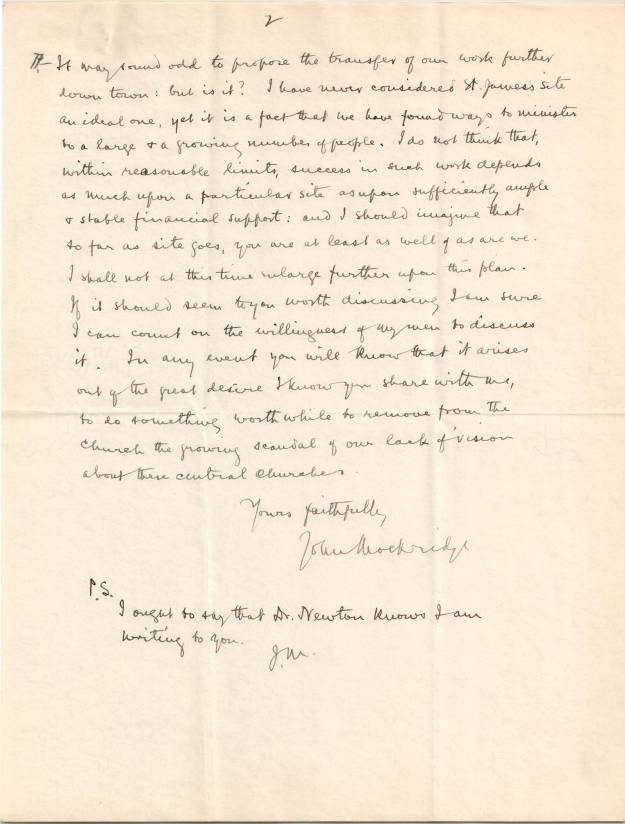 2
¶ It may sound odd to propose the transfer of our work further
down town: but is it? I have never considered St. James's site
an ideal one, yet it is a fact that we have found ways to minister
to a large & a growing number of people. I do not think that,
within reasonable limits, success in such work depends
as much upon a particular site as upon sufficiently ample
& stable financial support: and I should imagine that
so far as site goes, you are at least as well off as are we.
I shall not at this time enlarge further upon this plan.
If it should seem to you worth discussing I am sure
I can count on the willingness of my men to discuss
it. In any event you will know that it arises
out of the great desire I know you share with us,
to do something worth while to remove from the
Church the growing scandal of our lack of vision
about these central churches.
Yours faithfully
John Mockridge
P.S.
I ought to say that Dr. Newton knows I am
writing to you.
J.M.